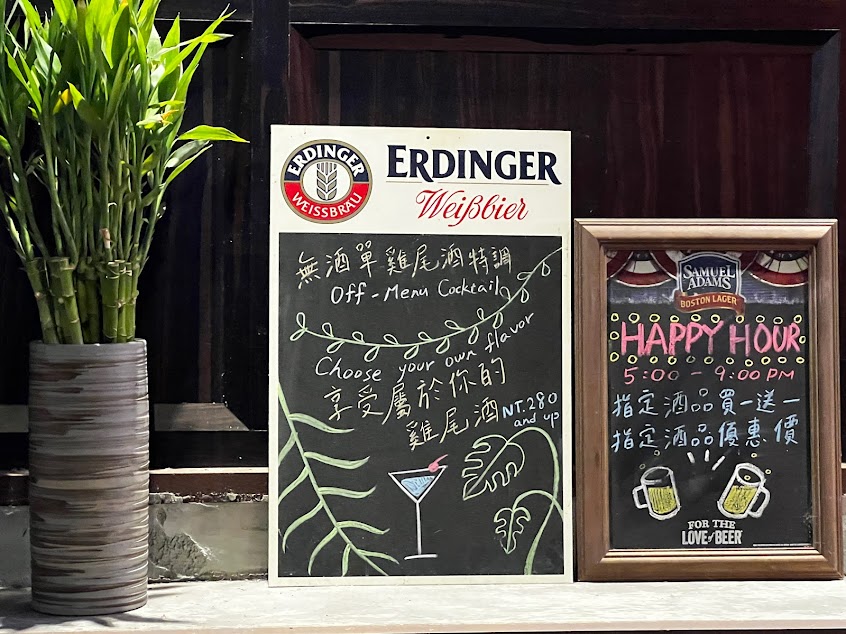 ERDINGER
WEISSBRÄU
ERDINGER
Weißbier
無酒單雞尾酒特調
Off-Menu Cocktail
Choose your own flavor
享受屬於你的
雞尾酒
NT.280
and up
SAMUEL
ADAMS
BOSTON LAGER
HAPPY HOUR
5:00 - 9:00 PM
指定酒品買一送一
指定酒品優惠價
FOR THE
LOVE of BEER